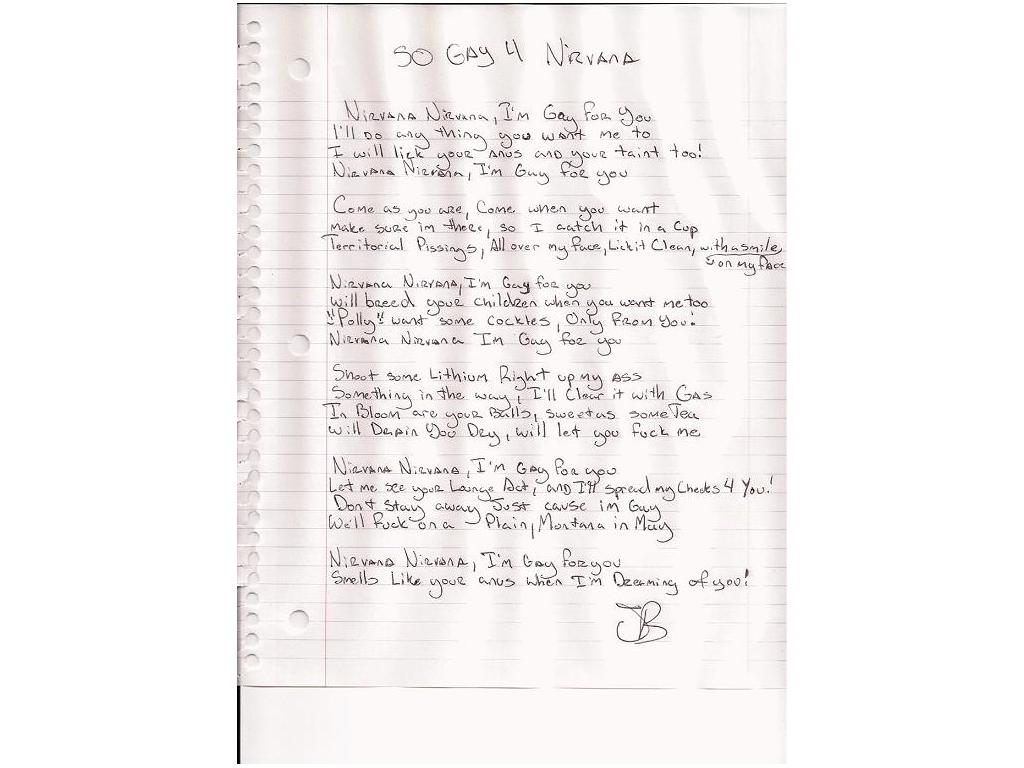 SO GAY 4 NIRVANA
NIRVANA NIRVANA, I'M Gay FOR YOU
I'll DO any thing you want me to
I will lick your anus and your taint too!
NIRVANA NIRVANA, I'm Gay for you
Come as you are, Come when you want
Make sure im there, so I catch it in a Cup
Territorial Pissings, All over my face, Lick it Clean, with a smile
on my face
NIRVANA NIRVANA, I'm Gay for you
Will breed your children when you want me too
"Polly" want some cockles, Only From You!
NIRVANA NIRVANA Im Gay for you
Shoot some Lithium Right up my ASS
Something in the way, I'll Clear it with Gas
In Bloom are your Balls, sweet as some Tea
Will Drain You Dry, will let you fuck me
NIRVANA NIRVANA, I'm GAY FOR you
Let me see your Lounge Act, and I'll spread my Cheeks 4 You!
Don't stay away Just cause im Gay
We'll fuck on a Plain, Montana in May
NIRVANA NIRVANA, I'm Gay for you
Smells Like your anus when I'm Dreaming of you!
JB